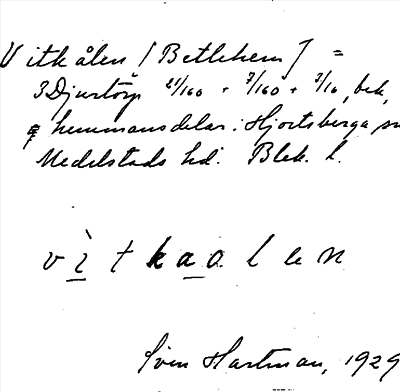 Vitkålen [Betlehem] =
3 Djurtorp 21/160 + 7/160 + 3/16, bek,
hemmansdelar i Hjortsberga sn
Medelstads hd. Blek. l.
v ì t k a o l e n
Sven Hartman, 1929